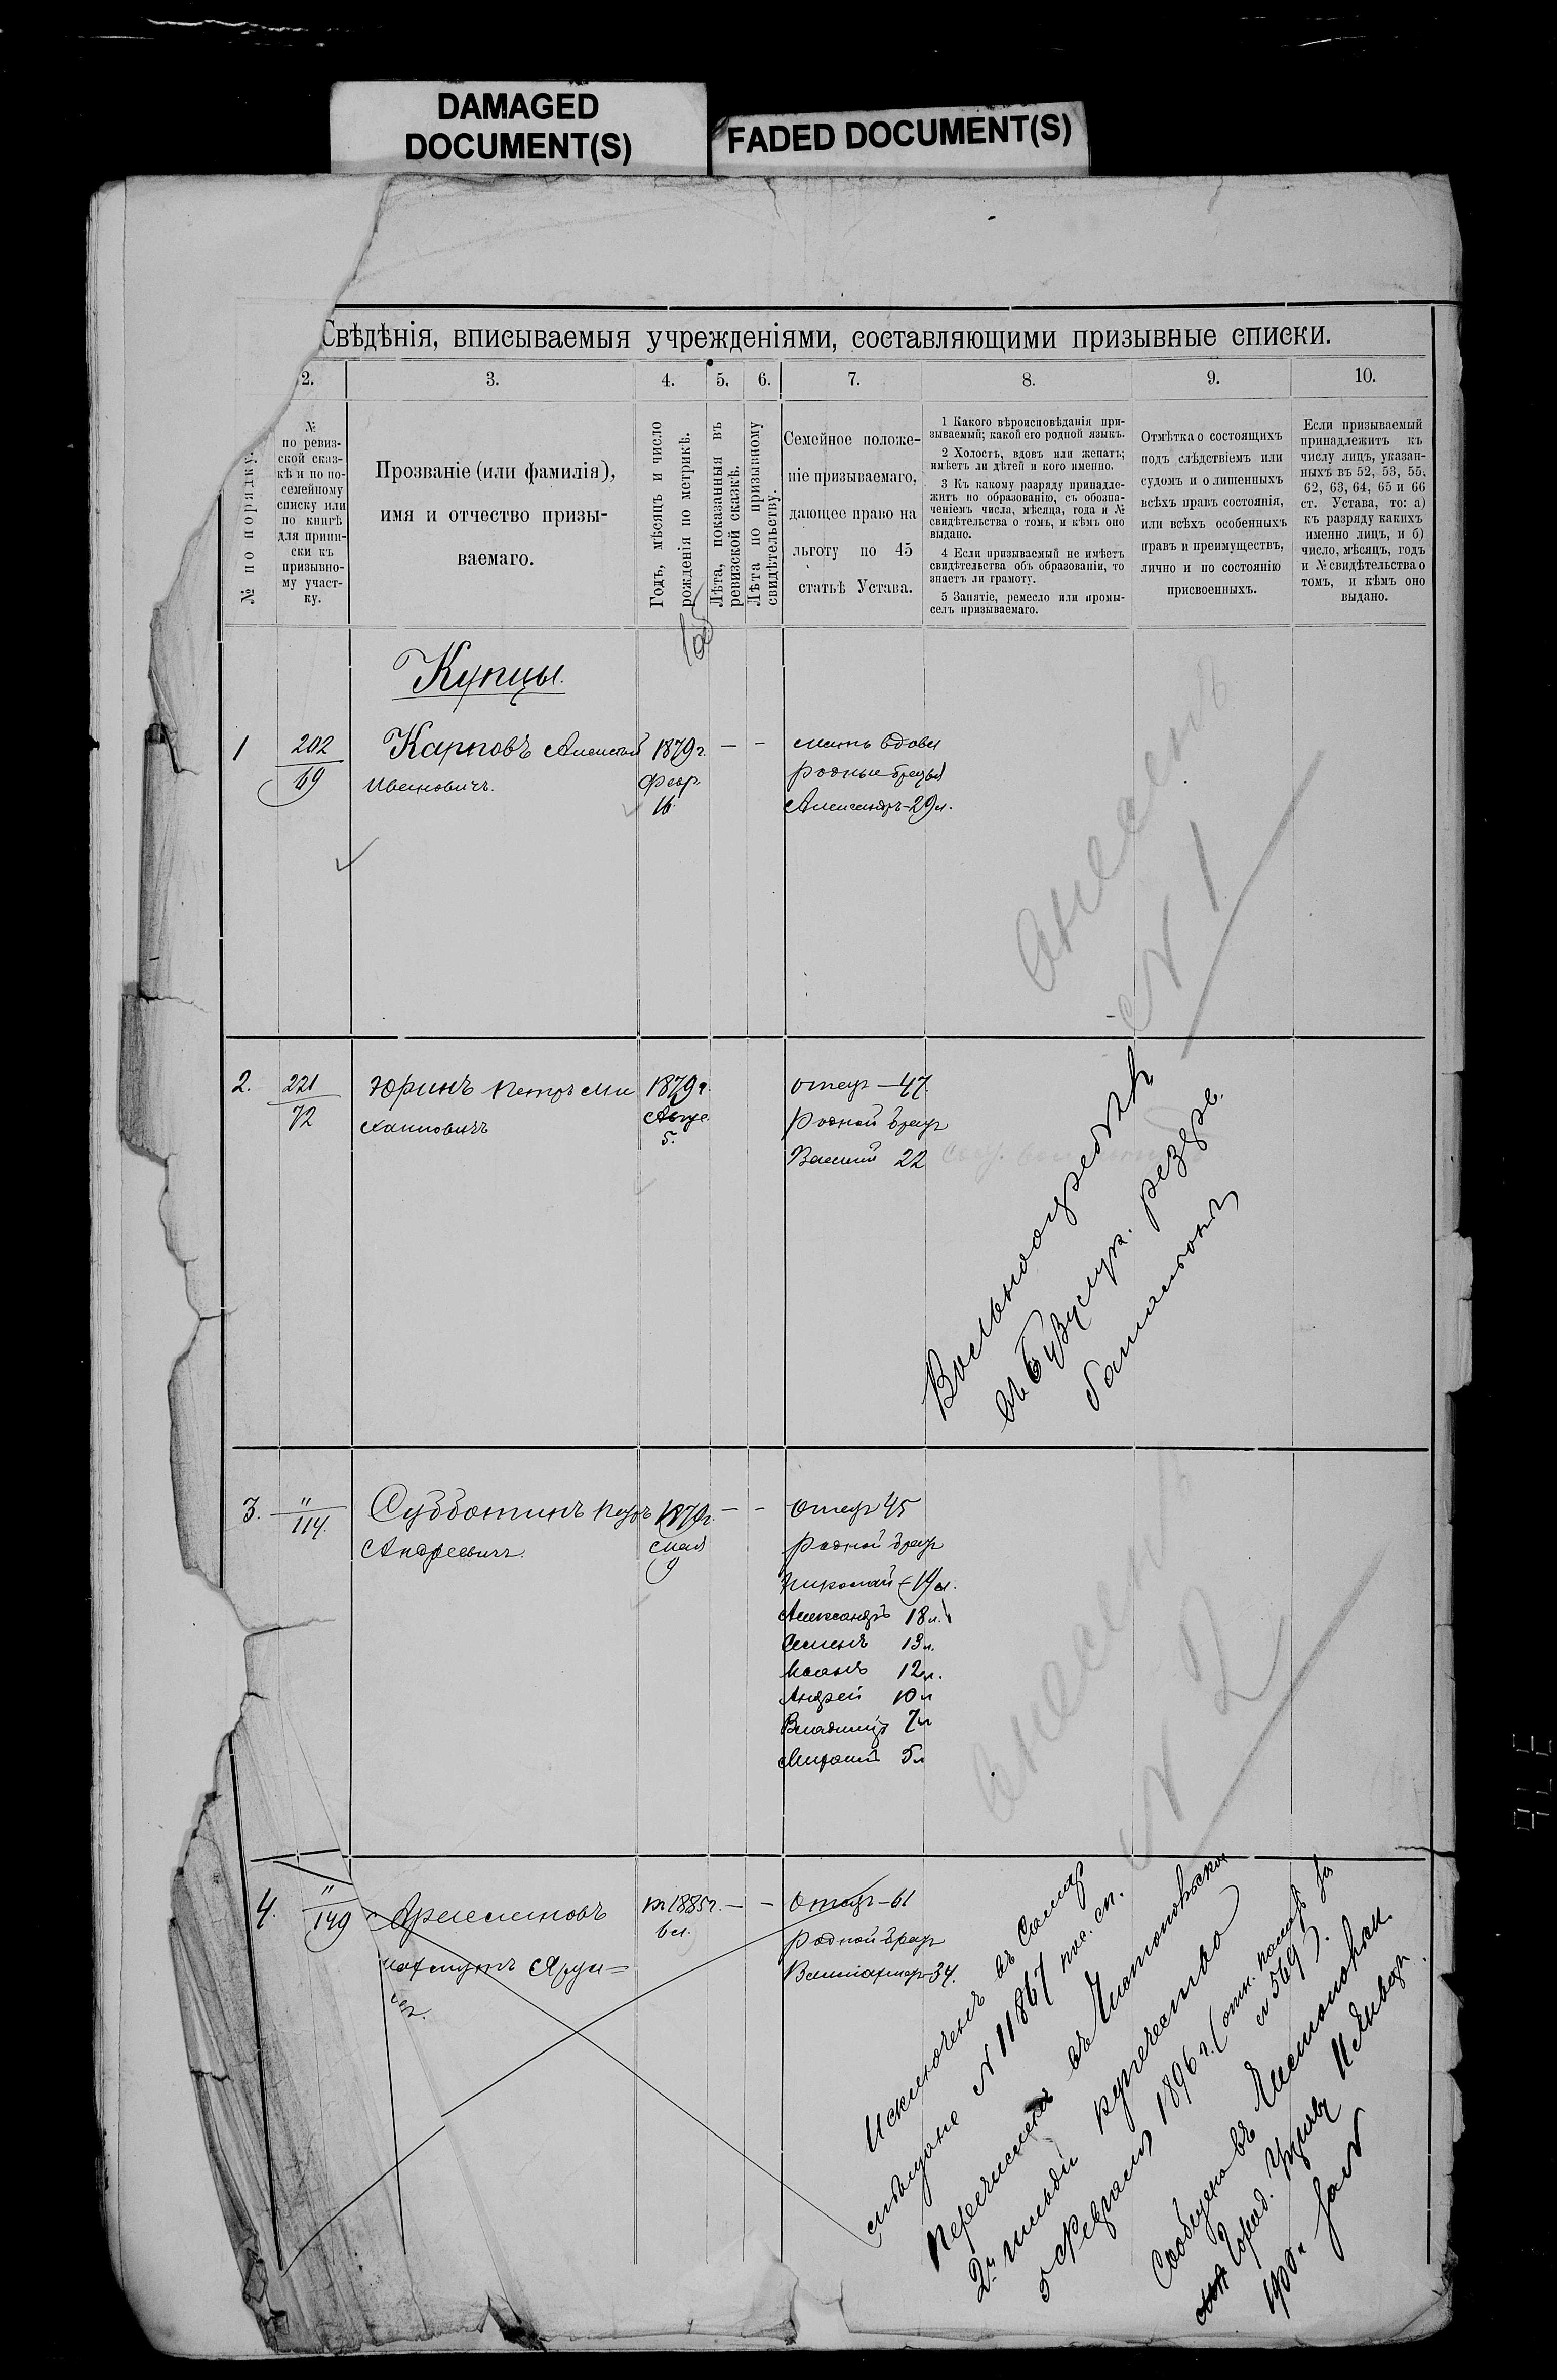 DAMAGED
DOCUMENT(S)
FADED DOCUMENT(S)
Свѣдѣнія, вписываемыя учрежденіями, составляющими призывные списки.
2.
3.
4.
5.
6.
7.
8.
9.
10.
№ по порядку.
№
по ревиз-
ской сказ-
кѣ и по по-
семейному
списку или
по книгѣ
для припи-
ски къ
призывно-
му участ-
ку.
Прозваніе (или фамилія),
имя и отчество призы-
ваемаго.
Годъ, мѣсяцъ и число
рожденія по метрикѣ.
Лѣта, показанныя въ
ревизской сказкѣ.
Лѣта по призывному
свидѣтельству.
Семейное положе-
ніе призываемаго,
дающее право на
льготу по 45
статьѣ Устава.
1 Какого вѣроисповѣданія при-
зываемый; какой его родной языкъ.
2 Холостъ, вдовъ или женатъ;
имѣетъ ли дѣтей и кого именно.
3 Къ какому разряду принадле-
житъ по образованію, съ обозна-
ченіемъ числа, мѣсяца, года и №
свидѣтельства о томъ, и кѣмъ оно
выдано.
4 Если призываемый не имѣетъ
свидѣтельства объ образованіи, то
знаетъ ли грамоту.
5 Занятіе, ремесло или промы-
селъ призываемаго.
Отмѣтка о состоящихъ
подъ слѣдствіемъ или
судомъ и о лишенныхъ
всѣхъ правъ состоянія,
или всѣхъ особенныхъ
правъ и преимуществъ,
лично и по состоянію
присвоенныхъ.
Если призываемый
принадлежитъ къ
числу лицъ, указан-
ныхъ въ 52, 53, 55,
62, 63, 64, 65 и 66
ст. Устава, то: а)
къ разряду какихъ
именно лицъ, и б)
число, мѣсяцъ, годъ
и № свидѣтельства о
томъ, и кѣмъ оно
выдано.
Купцы.
1
202
69
Карповъ
Ивановичъ.
1879 г.
Февр.
16
— —
мать вдова
родные братья
Александръ - 29 л.
внесенъ
N 1
2.
221
72
Юринъ Петръ Ми
хаиловичъ
1879 г.
Авгус.
5.
отецъ — 47
Родной братъ
Василій 22
Вольноопредѣл
въ Бузулук. резерв.
баталіонѣ
3.
"
114.
Субботинъ Петръ
Андреевичъ
1879 г.
мая
9
— —
Отецъ 45
родной братъ
Николай 14 л.
Александръ 18 л.
Семенъ 13 л.
Иванъ 12 л.
Андрей 10 л
Владиміръ 7 л
5 л
внесенъ
N 2
4.
"
149
1885 г.
6 л.
— —
Отецъ - 61
Родной братъ
34.
Исключенъ въ Самар
мѣщане N 11867 пос. сп.
Перечисленъ въ Чистопольское
2й гильдіи купечество
5 Февраля 1896 г. (отн. палаты за
N 569).
Сообщено въ Чистопольск.
Город. Управу 11 Января
1900 г за N